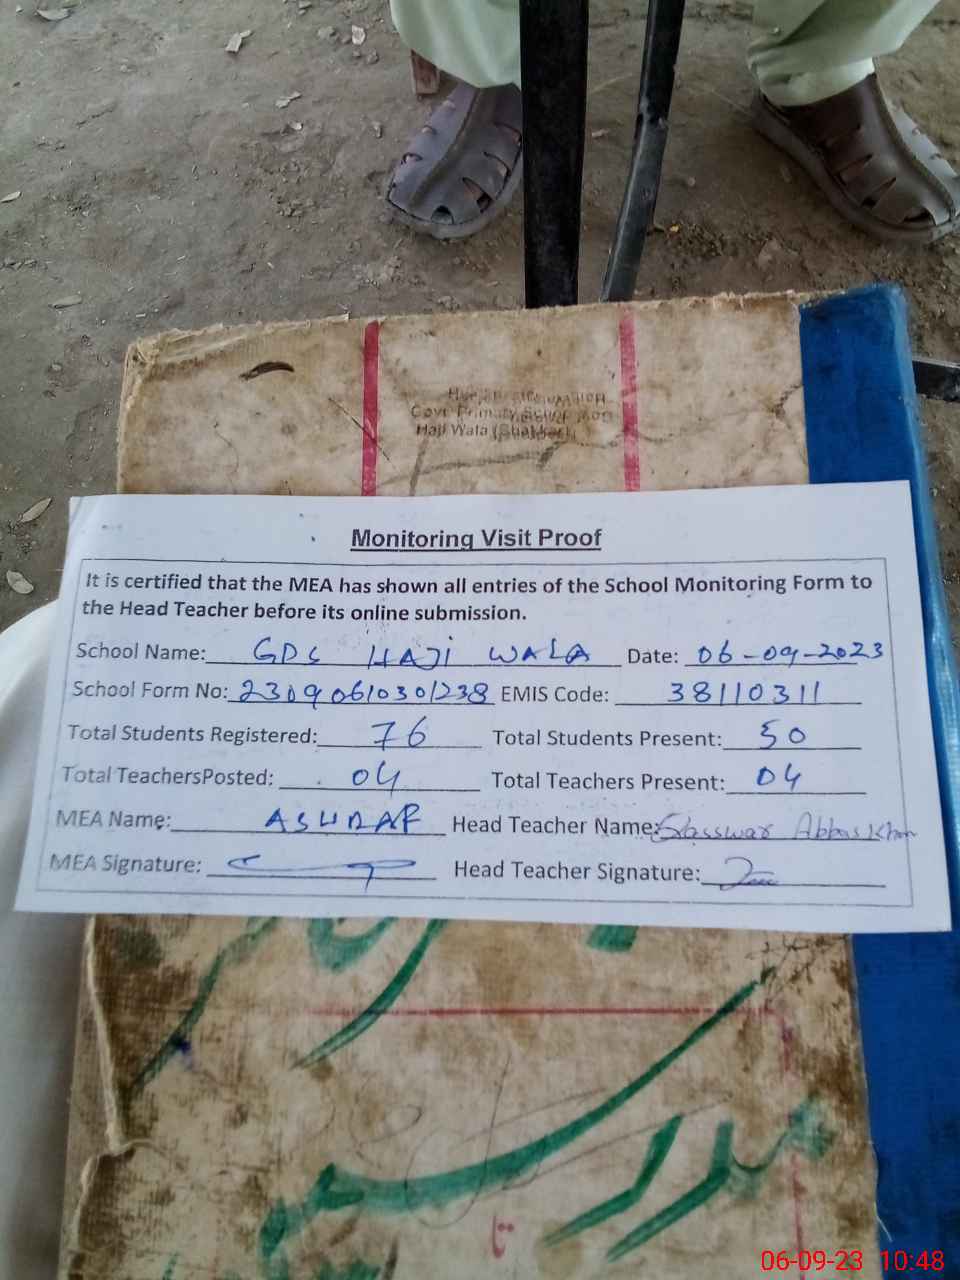 Govt Primary School
Haji Wala (Bhakkar)
Monitoring Visit Proof
It is certified that the MEA has shown all entries of the School Monitoring Form to
the Head Teacher before its online submission.
School Name: GPS HAJI WALA Date: 06-09-2023
School Form No: 23090610301238 EMIS Code: 38110311
Total Students Registered: 76 Total Students Present: 50
Total TeachersPosted: 04 Total Teachers Present: 04
MEA Name: ASHRAF Head Teacher Name: Abbas Khan
MEA Signature: Head Teacher Signature:
مدرسہ
06-09-23 10:48